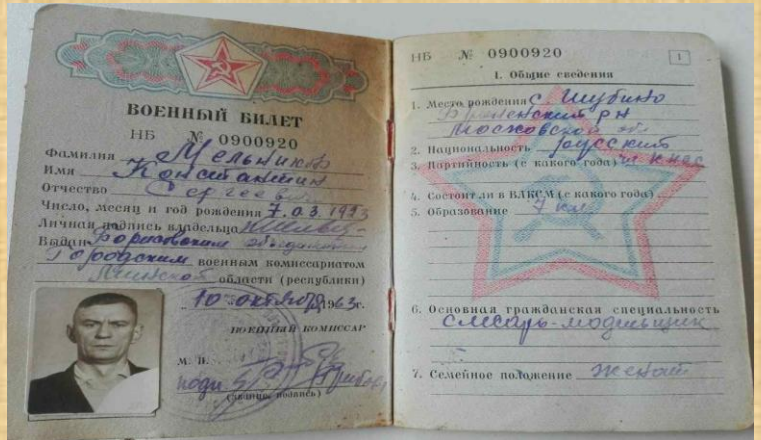 ВОЕННЫЙ БИЛЕТ
НБ № 0900920
Фамилия Мельников
Имя Константин
Отчество Сергеевич
Число, месяц и год рождения 7.03.19
Личная подпись владельца
Выдан Борисовским объединённым
Городским военным комиссариатом
Минской области (республики)
10 октября 1963г.
ВОЕННЫЙ КОМИССАР
М. П.
подп.
(звание, подпись)
НБ № 0900920
1
I. Общие сведения
1. Место рождения с. Шубино
р-н
Московской обл
2. Национальность русский
3. Партийность (с какого года) чл КПСС
4. Состоит ли в ВЛКСМ (с какого года)
5. Образование 7 кл
6. Основная гражданская специальность
слесарь-модельщик
7. Семейное положение женат